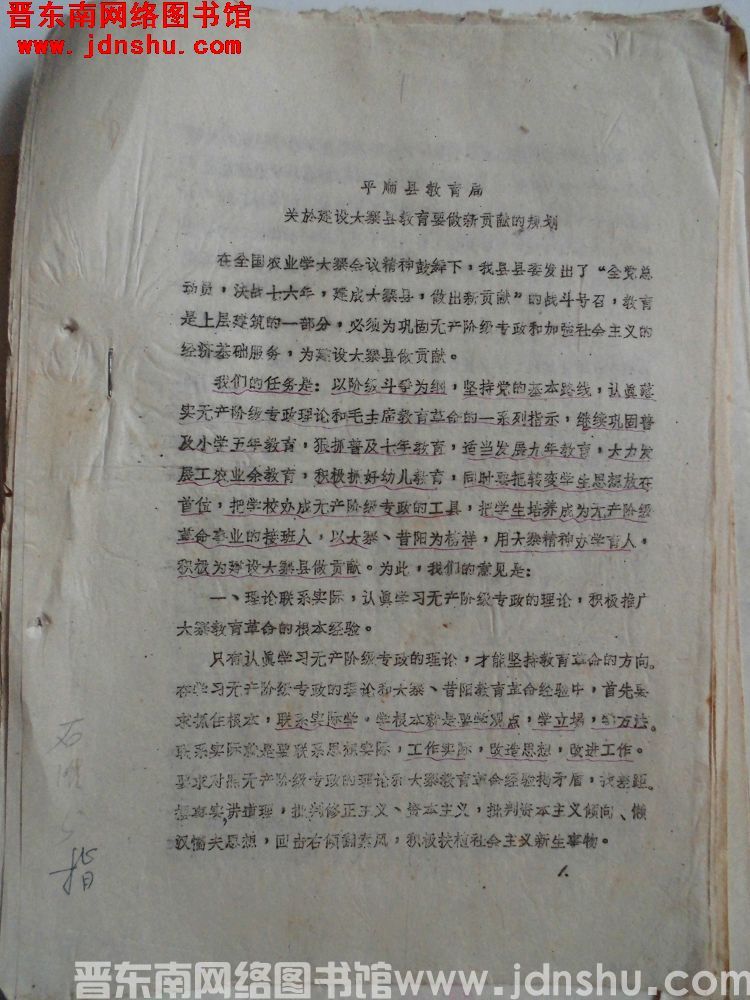 晋东南网络图书馆
www.jdnshu.com
平顺县教育局
关於建设大寨县教育要做新贡献的规划
在全国农业学大寨会议精神鼓舞下，我县县委发出了“全党总
动员，决战七六年，建成大寨县，做出新贡献”的战斗号召，教育
是上层建筑的一部分，必须为巩固无产阶级专政和加强社会主义的
经济基础服务，为建设大寨县做贡献。
我们的任务是：以阶级斗争为纲，坚持党的基本路线，认真落
实无产阶级专政理论和毛主席教育革命的一系列指示，继续巩固普
及小学五年教育，狠抓普及七年教育，适当发展九年教育，大力发
展工农业余教育，积极抓好幼儿教育，同时要把转变学生思想放在
首位，把学校办成无产阶级专政的工具，把学生培养成为无产阶级
革命事业的接班人，以大寨、昔阳为榜样，用大寨精神办学育人，
积极为建设大寨县做贡献。为此，我们的意见是：
一、理论联系实际，认真学习无产阶级专政的理论，积极推广
大寨教育革命的根本经验。
只有认真学习无产阶级专政的理论，才能坚持教育革命的方向。
在学习无产阶级专政的理论和大寨、昔阳教育革命经验中，首先要
求抓住根本，联系实际学。学根本就是要学观点，学立场，学方法。
联系实际就是要联系思想实际，工作实际，改造思想，改进工作。
要求对照无产阶级专政的理论和大寨教育革命经验找矛盾，谈差距。
摆事实，讲道理，批判修正主义、资本主义，批判资本主义倾向、懒
汉懦夫思想，回击右倾翻案风，积极扶植社会主义新生事物。
1.
晋东南网络图书馆www.jdnshu.com